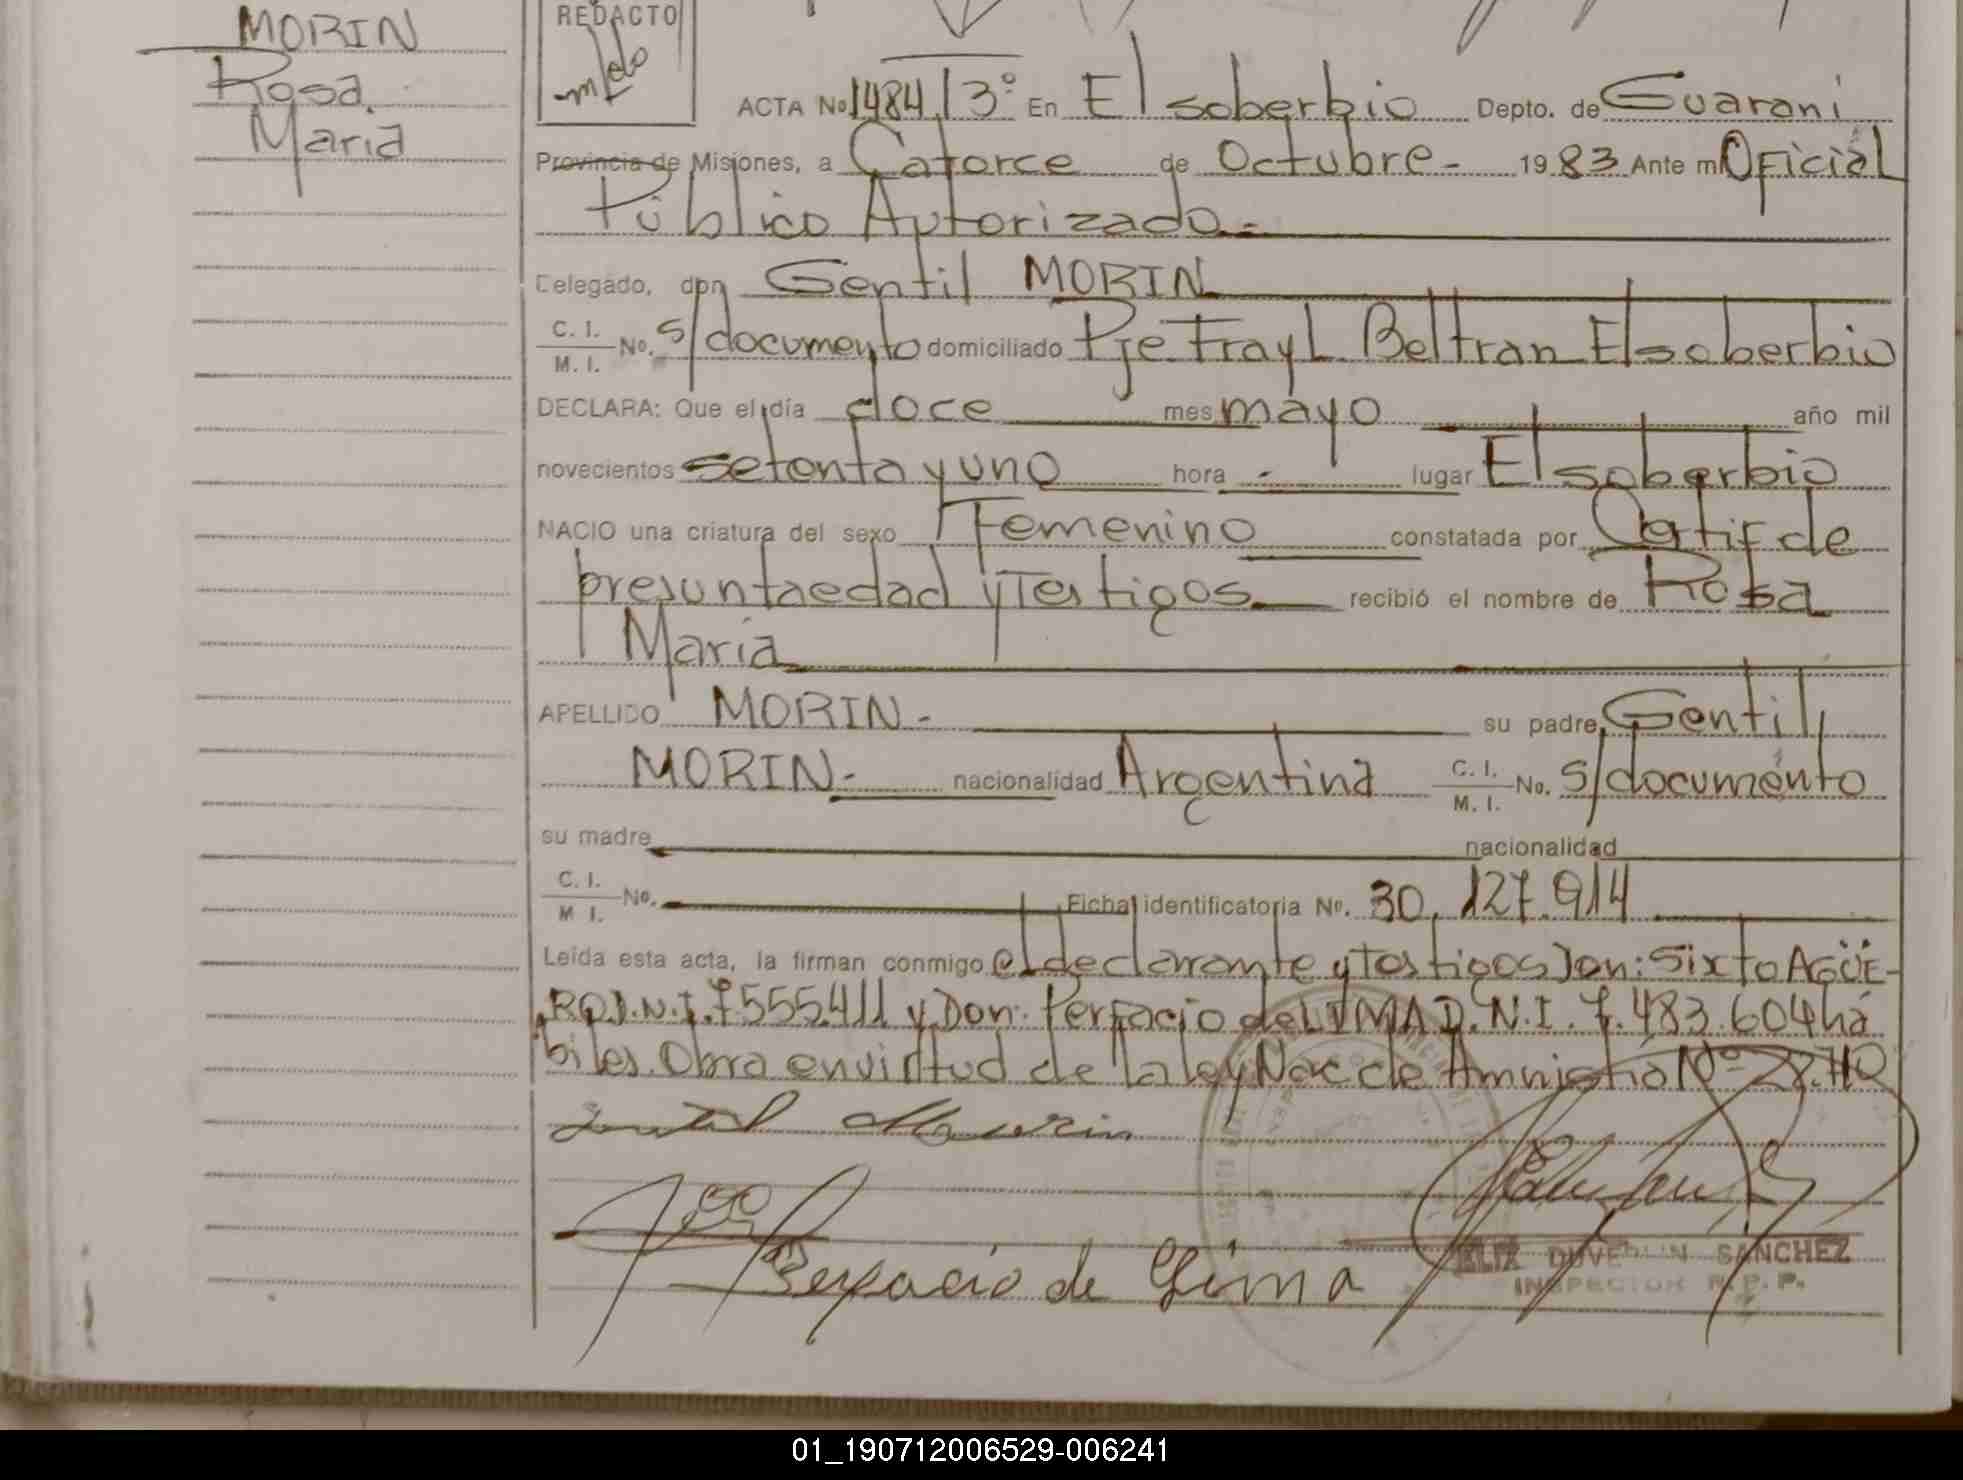 MORIN
Rosa
Maria
REDACTO
ACTA No 1484/3º En El soberbio Depto. de Guarani
Provincia de Misiones, a Catorce de Octubre - 1983 Ante mi Oficial
Público Autorizado.-
Delegado, don Gentil MORIN
C. I.
M. I.
No. s/documento domiciliado Pje Fray L Beltran El soberbio
DECLARA: Que el día doce mes mayo año mil
novecientos setenta y uno hora - lugar El soberbio
NACIO una criatura del sexo Femenino constatada por Certif de
presunta edad y Testigos recibió el nombre de Rosa
María
APELLIDO MORIN - su padre Gentil
MORIN - nacionalidad Argentina C. I.
M. I.
No. s/documento
su madre nacionalidad
C. I.
M I.
No. Ficha identificatoria No. 30.127.914
Leída esta acta, la firman conmigo el declarante y Testigos Don: Sixto AGÜE-
RO D.N.I. 7.555.411 y Don: Perfacio de LIMA D.N.I. 7.483.604 há
biles. Obra en virtud de la ley Nac de Amnistia Nº
Perfacio de Lima
DUVERLIN SANCHEZ
INSPECTOR R. P. P.
01_190712006529-006241